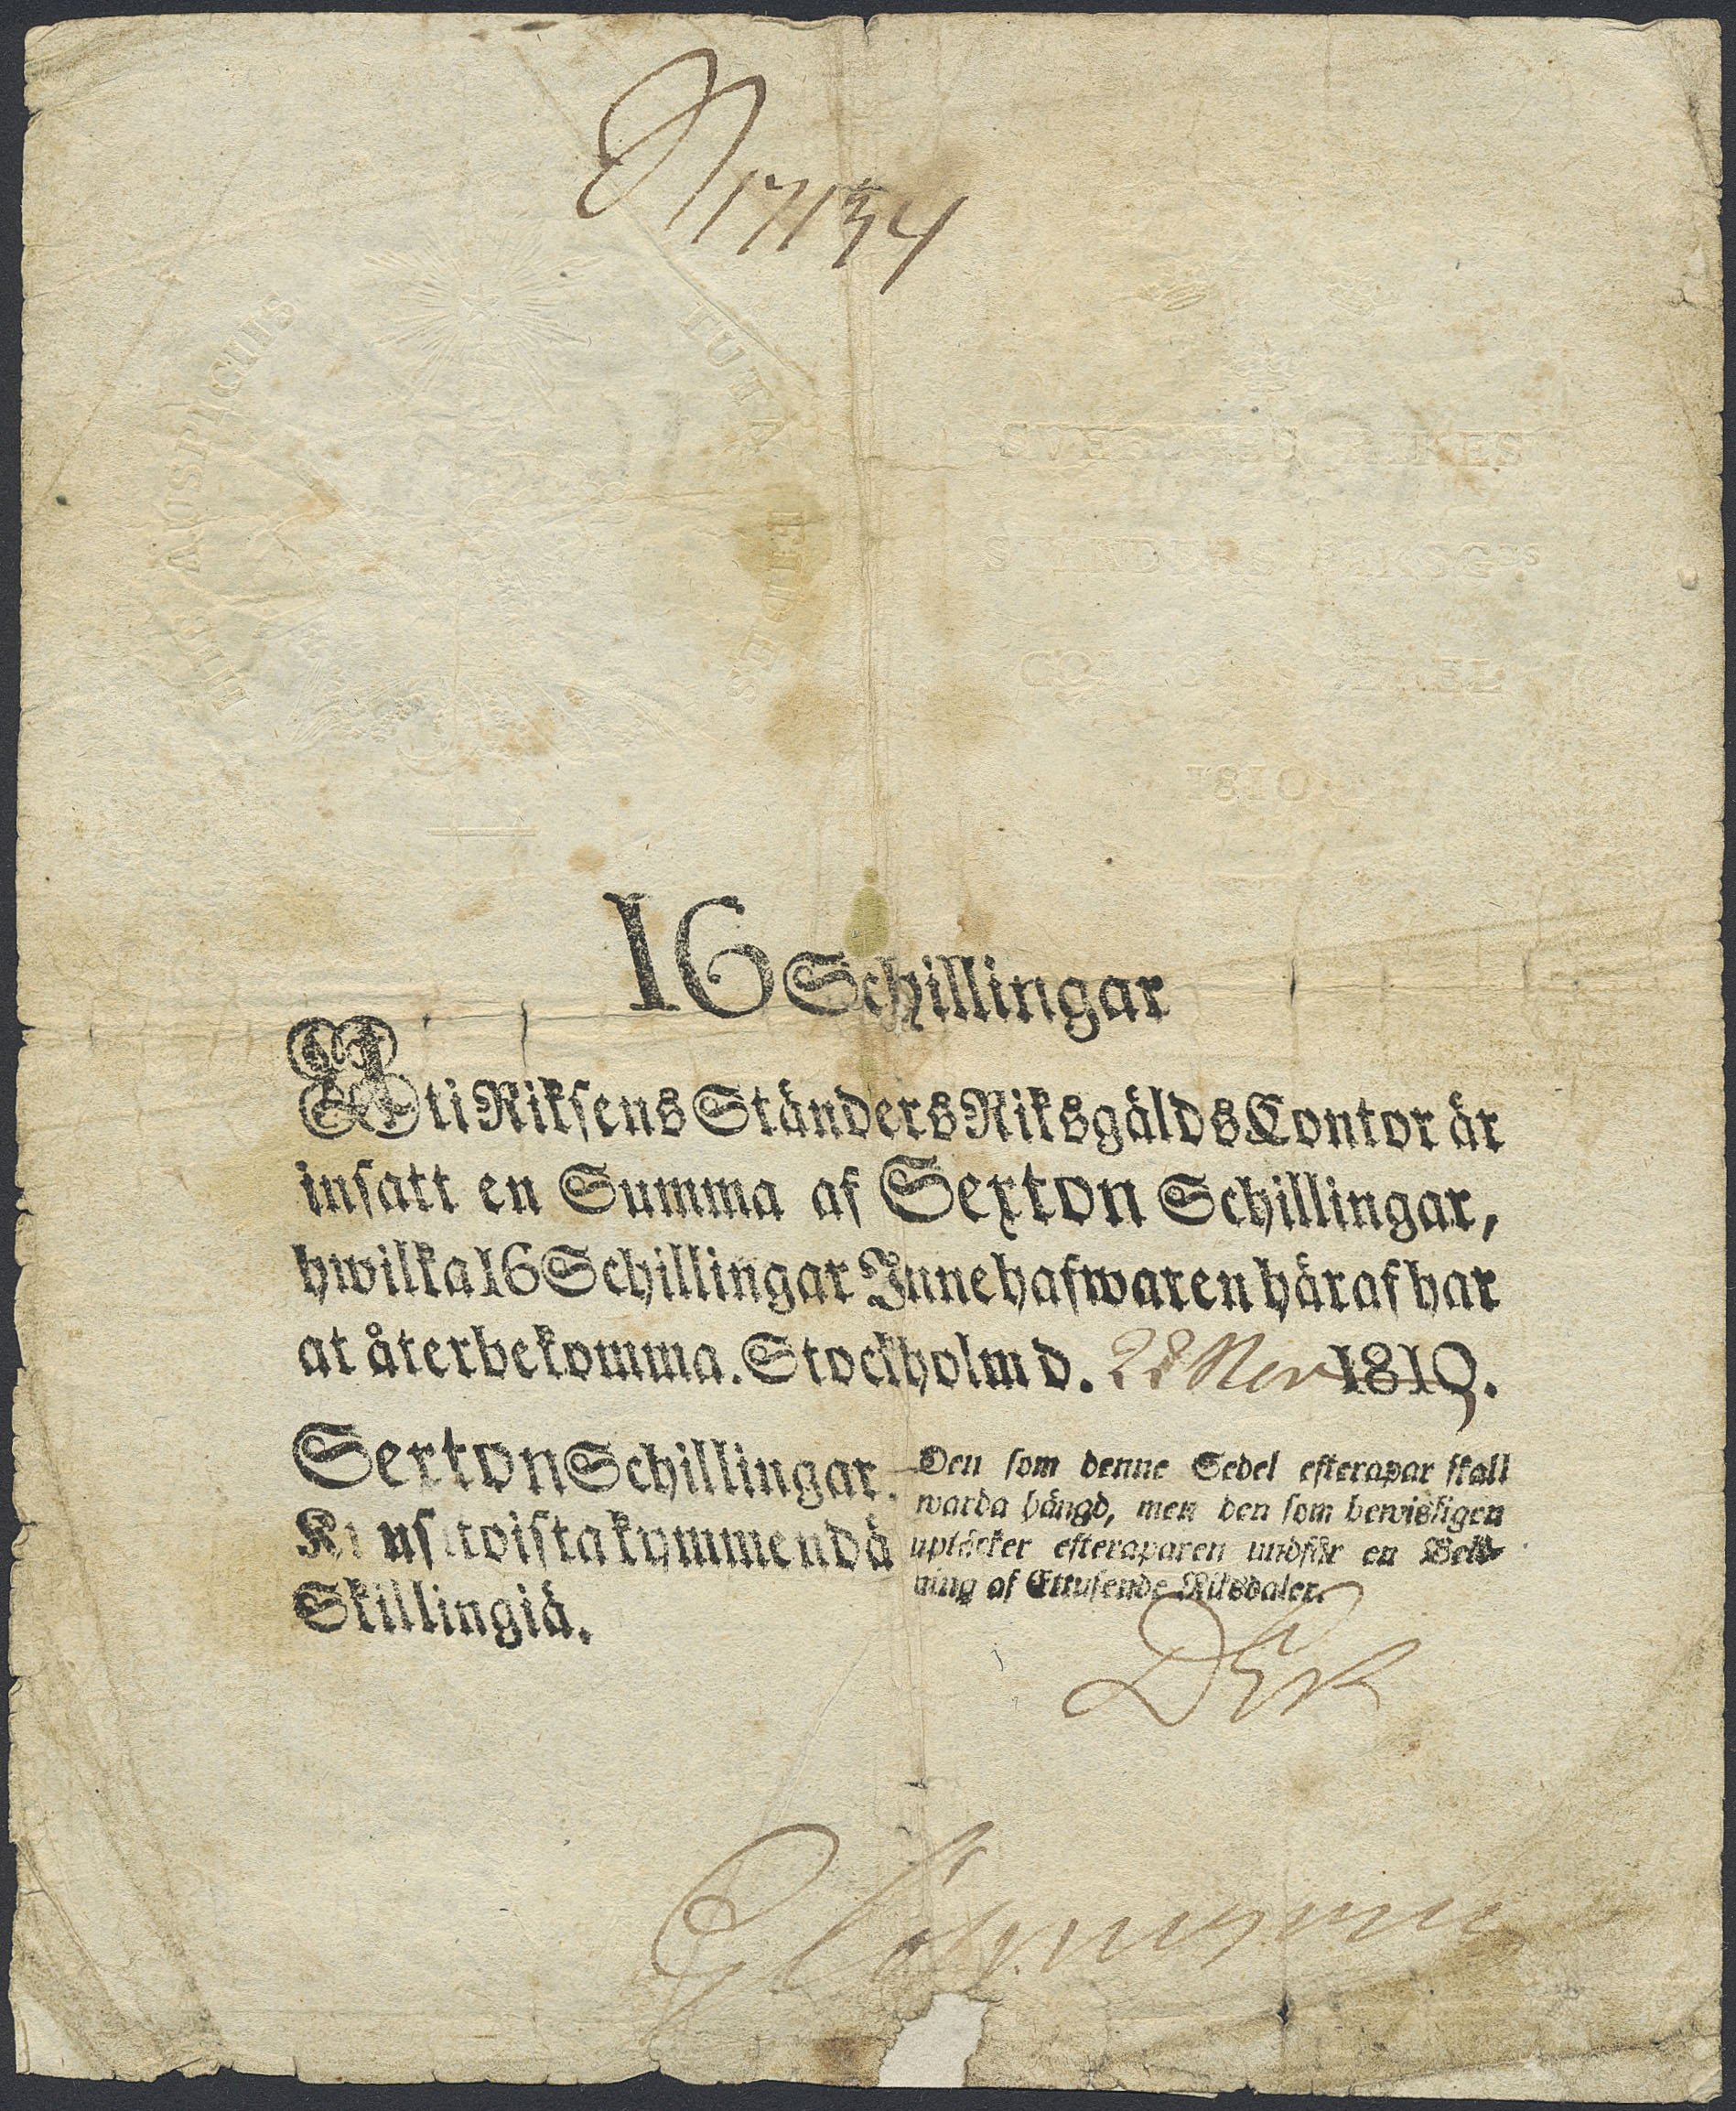 N 17134
HIS AUSPICIIS TUTA FIDES
SVERIGES RIKES
STÄNDERS RIKSG:S
1810
16 Schillingar
At i Riksens Ständers Riksgälds Contor är
insatt en Summa af Sexton Schillingar,
hwilka 16 Schillingar Innehafwaren häraf har
at återbekomma. Stockholm d. 28 Nov 1819.
Sexton Schillingar.
Kuusitoistakymmendä
Skillingiä.
Den som denne Sedel efterapar skall
warda hängd, men den som bewisligen
uptäcker efteraparen undfår en Belö-
ning af Ettusende Riksdaler.